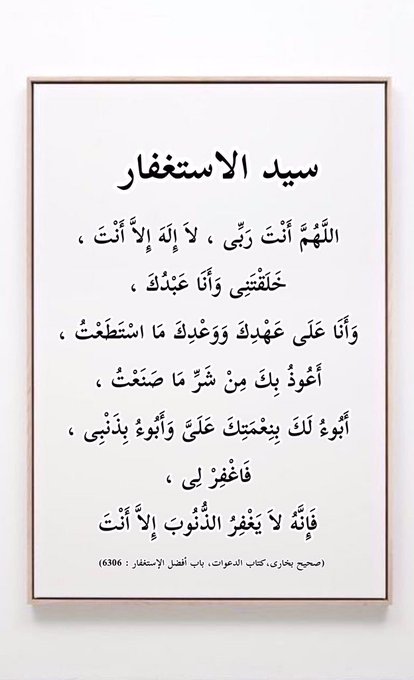 سيد الاستغفار
اللَّهُمَّ أَنْتَ رَبِّى ، لاَ إِلَهَ إِلاَّ أَنْتَ ،
خَلَقْتَنِى وَأَنَا عَبْدُكَ ،
وَأَنَا عَلَى عَهْدِكَ وَوَعْدِكَ مَا اسْتَطَعْتُ ،
أَعُوذُ بِكَ مِنْ شَرِّ مَا صَنَعْتُ ،
أَبُوءُ لَكَ بِنِعْمَتِكَ عَلَىَّ وَأَبُوءُ بِذَنْبِى ،
فَاغْفِرْ لِى ،
فَإِنَّهُ لاَ يَغْفِرُ الذُّنُوبَ إِلاَّ أَنْتَ
(صحيح بخارى،كتاب الدعوات، باب أفضل الإستغفار : 6306)